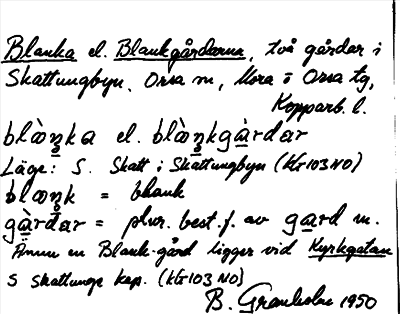 Blanka el. Blankgårdarna, två gårdar i
Skattungbyn, Orsa sn, Mora o Orsa tg,
Kopparb. l.
blàṇka el. blàṇkgàrdar
Läge: S. Skatt i Skattungbyn (KG 103 NO)
blaṇk = blank
gàrdar = plur. best. f. av gard m.
Ännu en Blank-gård ligger vid Kyrkgatan
S Skattunge kap. (KG 103 NO)
B. Granholm 1950